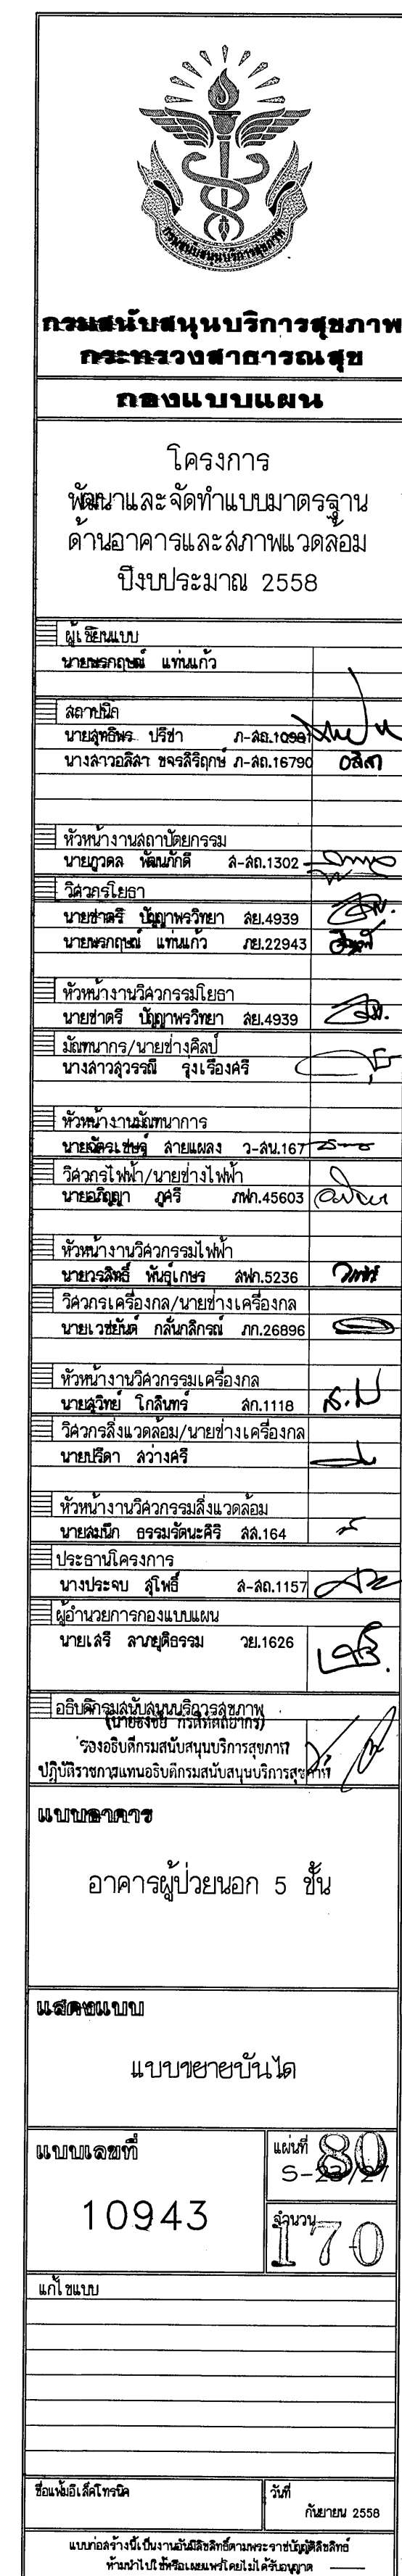 กรมสนับสนุนบริการสุขภาพ
กรมสนับสนุนบริการสุขภาพ
กระทรวงสาธารณสุข
กองแบบแผน
โครงการ
พัฒนาและจัดทำแบบมาตรฐาน
ด้านอาคารและสภาพแวดล้อม
ปีงบประมาณ 2558
ผู้เขียนแบบ
นายพรกฤษณ์ แท่นแก้ว
สถาปนิก
นายสุทธิพร ปรีชา ภ-สถ.10981
นางสาวอลิสา ขจรสิริฤกษ์ ภ-สถ.16790
อลิสา
หัวหน้างานสถาปัตยกรรม
นายภูวดล พัฒนภักดี ส-สถ.1302
วิศวกรโยธา
นายชาตรี ปัญญาพรวิทยา สย.4939
นายพรกฤษณ์ แท่นแก้ว ภย.22943
หัวหน้างานวิศวกรรมโยธา
นายชาตรี ปัญญาพรวิทยา สย.4939
มัณฑนากร/นายช่างศิลป์
นางสาวสุวรรณี รุงเรืองศรี
หัวหน้างานมัณฑนาการ
นายฉัตรเชษฐ์ สายแผลง ว-สน.167
วิศวกรไฟฟ้า/นายช่างไฟฟ้า
นายอภิญญา ภูศรี ภฟก.45603
หัวหน้างานวิศวกรรมไฟฟ้า
นายวรสิทธิ์ พันธุ์เกษร สฟก.5236
วิศวกรเครื่องกล/นายช่างเครื่องกล
นายเวชยันต์ กลั่นกสิกรณ์ ภก.26896
หัวหน้างานวิศวกรรมเครื่องกล
นายสุวิทย์ โกสินทร์ สก.1118
วิศวกรสิ่งแวดล้อม/นายช่างเครื่องกล
นายปรีดา สว่างศรี
หัวหน้างานวิศวกรรมสิ่งแวดล้อม
นายสมนึก ธรรมรัตนะศิริ สส.164
ประธานโครงการ
นางประจบ สุโพธิ์ ส-สถ.1157
ผู้อำนวยการกองแบบแผน
นายเสรี ลาภยุติธรรม วย.1626
อธิบดีกรมสนับสนุนบริการสุขภาพ
รองอธิบดีกรมสนับสนุนบริการสุขภาพ
ปฏิบัติราชการแทนอธิบดีกรมสนับสนุนบริการสุขภาพ
แบบอาคาร
อาคารผู้ป่วยนอก 5 ชั้น
แสดงแบบ
แบบขยายบันได
แบบเลขที่
10943
แผ่นที่ 80
S-23/27
จำนวน
170
แก้ไขแบบ
ชื่อแฟ้มอิเล็คโทรนิค
วันที่
กันยายน 2558
แบบก่อสร้างนี้เป็นงานอันมีลิขสิทธิ์ตามพระราชบัญญัติลิขสิทธิ์
ห้ามนำไปใช้หรือเผยแพร่โดยไม่ได้รับอนุญาต